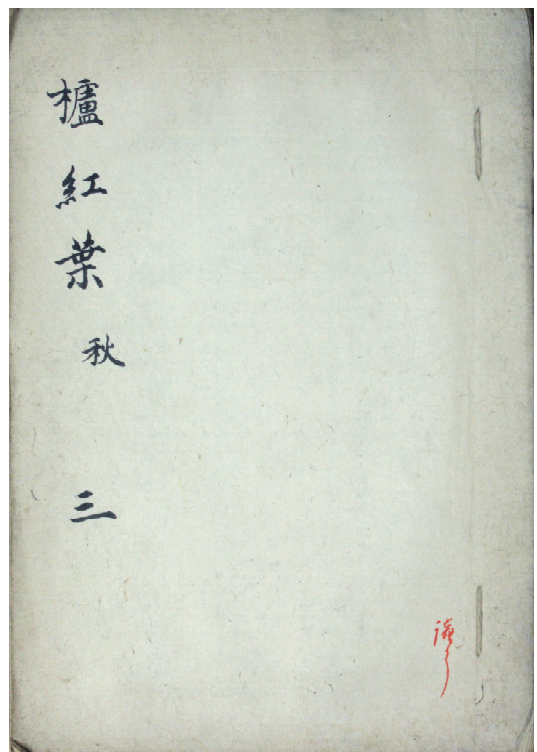 櫨紅葉 秋 三